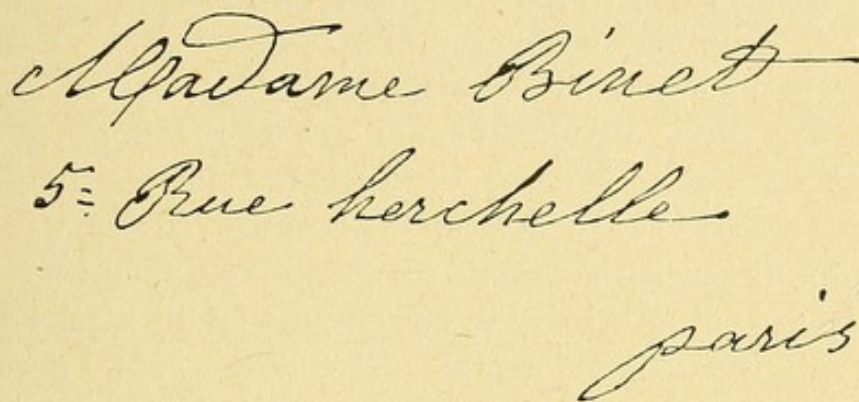 Madame Binet
5= Rue herchelle
paris